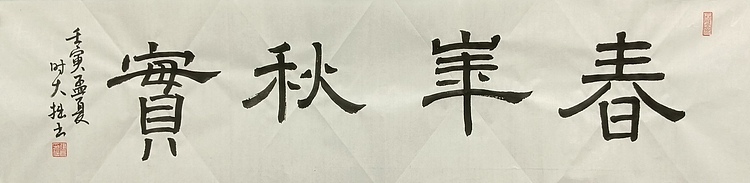 春華秋實
壬寅孟夏
时大拙书